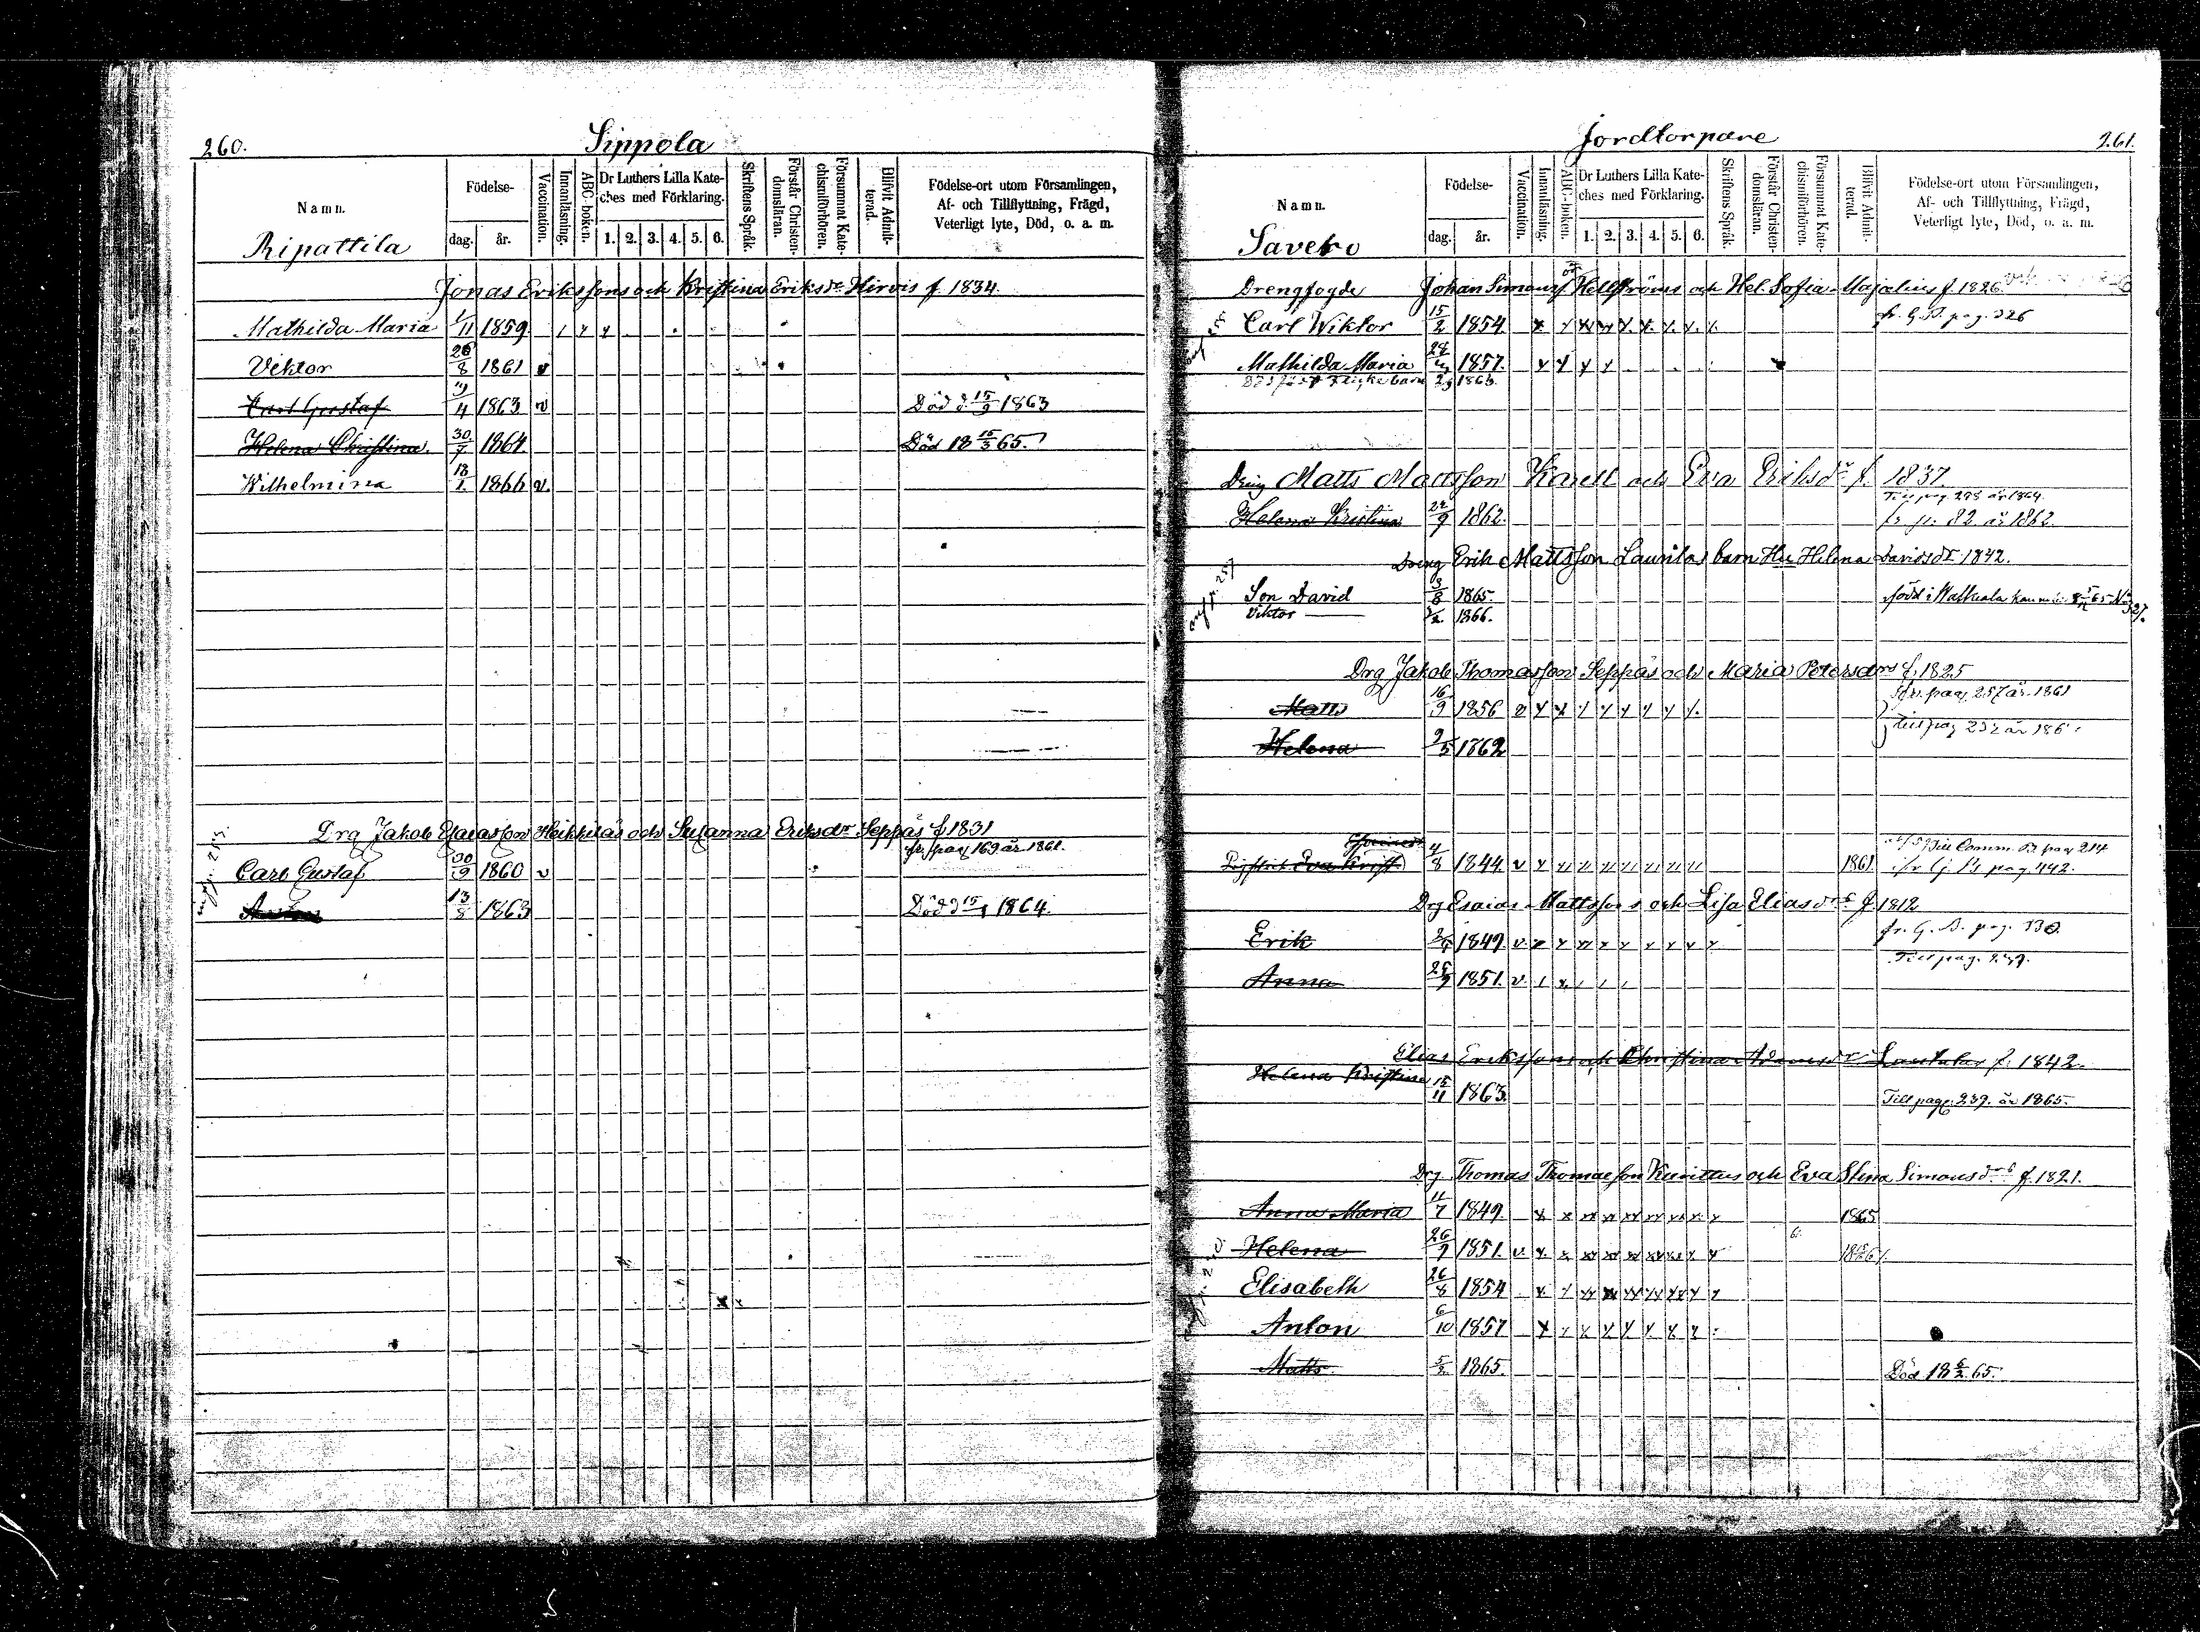 260.
Sippola
Namn.
Födelse-
dag.
år.
Vaccination.
Innanläsning.
ABC-boken.
Dr Luthers Lilla Kate-
ches med Förklaring.
1. 2. 3. 4. 5. 6.
Skriftens Språk.
Förstår Christen-
domsläran.
Försummat Kate-
chismiförhören.
Blifvit Admit-
terad.
Födelse-ort utom Församlingen,
Af- och Tillflyttning, Frägd,
Veterligt lyte, Död, o. a. m.
Ripattila
Jonas Erikssons och Kristina Eriksdr Hirvis f. 1834
Mathilda Maria 1/11 1859
Viktor 26/8 1861 v
Carl Gustaf 1863 v Död d. 15/9 1863
Helena Christina. 30/7 1864. Död 18 15/3 65.
Wilhelmina 18/1. 1866 v.
Drg Jakob Esaiasson Heikkiläs och Susanna Eriksdr Seppäs f 1831
fr. pag 169 år 1861.
Carl Gustaf 30/9 1860 v
13/8 1863 Död 1864.
Jordtorpare
261.
Namn.
Födelse-
dag.
år.
Vaccination.
Innanläsning.
ABC-boken.
Dr Luthers Lilla Kate-
ches med Förklaring.
1. 2. 3. 4. 5. 6.
Skriftens Språk.
Förstår Christen-
domsläran.
Försummat Kate-
chismiförhören.
Blifvit Admit-
terad.
Födelse-ort utom Församlingen,
Af- och Tillflyttning, Frägd,
Veterligt lyte, Död, o. a. m.
Savero
Drengfogde Johan Simons Hellströms och Hel. Sofia Majalius f. 1826
Carl Wiktor 15/2 1854 fr. G. B. pag. 326
Mathilda Maria 1857.
1863.
Dreng Matts Mattsson Karell och Eva Eriksdr f. 1837
Till pag 298 år 1864.
Helena Kristina 22/9 1862. fr. p. 82 år 1862
Dreng Erik Mattsson Lauritas barn Hu Helena Davidsdr 1842.
Son David 3/8 1865.
Viktor 1866.
Drg Jakob Thomasson Seppäs och Maria Petersdrs f. 1825
fr. pag 257 år 1861
Matts 16/9 1856
Helena 9/5 1862
4/8 1844. v 1861 fr G. B. pag. 442.
Till Comm. B. pag 214
Drg Esaias Mattssons och Lisa Eliasdrs f. 1812
Erik 1849. v fr. G. B. pag. 330
Anna 25/9 1851. v Till pag. 239.
Elias Erikssons och Christina Adamsdr f. 1842.
Helena Kristina 15/11 1863. Till pag. 239. år 1865.
Drg Thomas Thomasson Kurittus och Eva Stina Simonsdrs f. 1821.
Anna Maria 11/7 1849. 1865
Helena 26/9 1851. v
Elisabeth 26/8 1854
Anton 6/10 1857
Matts 5/2 1865. Död 18 6/2 65.